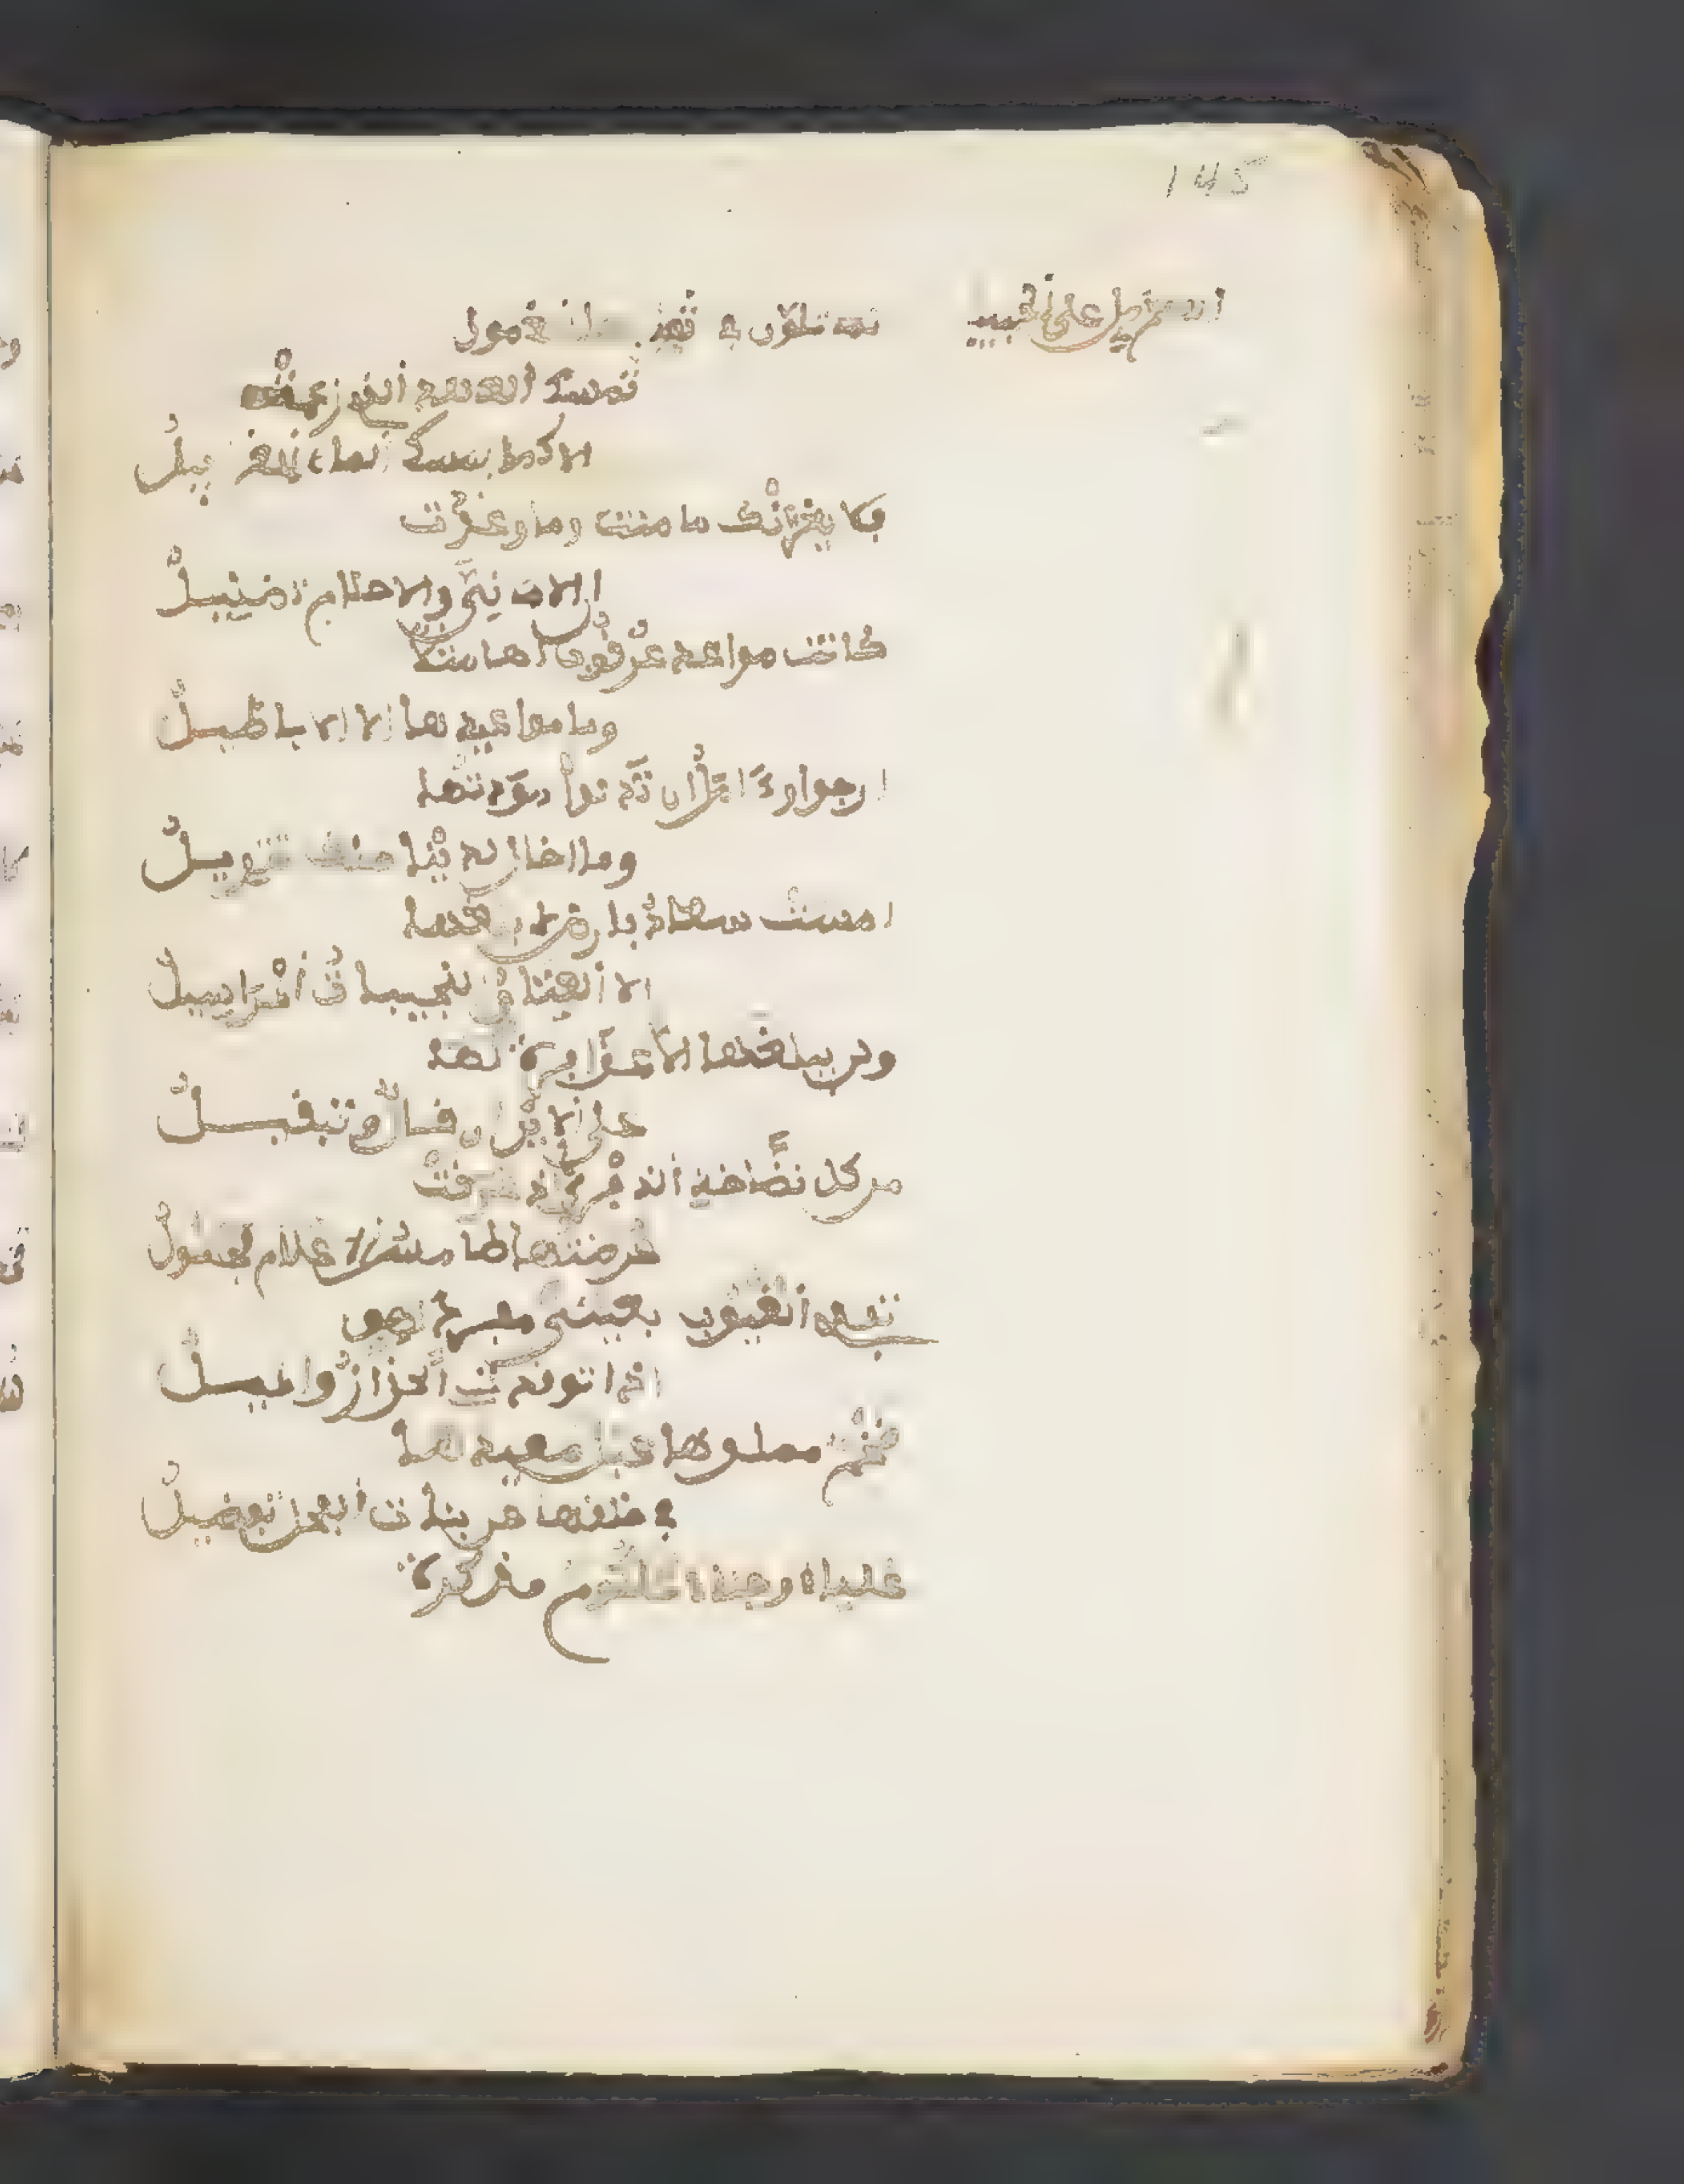 145
على الحبيب
كما تلون في
تمسك العهد الذي زعمت
الا كما يمسك الماء
فلا يغرنك ما منت وما وعدت
ان الاماني والاحلام تضليل
كانت مواعد عرقوب لها مثلا
وما مواعيدها الا الاباطيل
ارجوا وءامل ان تدنوا مودتها
وما اخال لدينا منك تنويل
امست سعاد بارض لا يبلغها
الا العتاق النجيبات المراسيل
ولن يبلغها الا عذافرة
على الاين ارقال وتبغيل
من كل نضاخة الذفرى اذا عرقت
عرضتها طامس الاعلام مجهول
الغيوب بعيني مفرد لهق
اذا توقدت الحزاز والميل
ضخم مقلدها عبل مقيدها
في خلقها عن بنات الفحل تفضيل
غلباء وجناء علكوم مذكرة